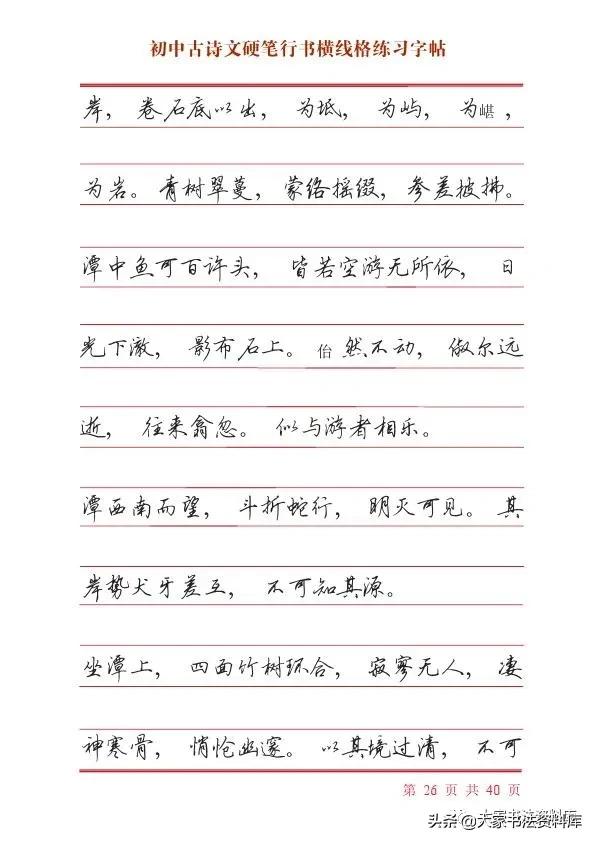 初中古诗文硬笔行书横线格练习字帖
岸，卷石底以出，为坻，为屿，为嵁，
为岩。青树翠蔓，蒙络摇缀，参差披拂。
潭中鱼可百许头，皆若空游无所依，日
光下澈，影布石上。佁然不动，俶尔远
逝，往来翕忽。似与游者相乐。
潭西南而望，斗折蛇行，明灭可见。其
岸势犬牙差互，不可知其源。
坐潭上，四面竹树环合，寂寥无人，凄
神寒骨，悄怆幽邃。以其境过清，不可
第 26 页 共 40 页
大家书法资料库
头条@大家书法资料库